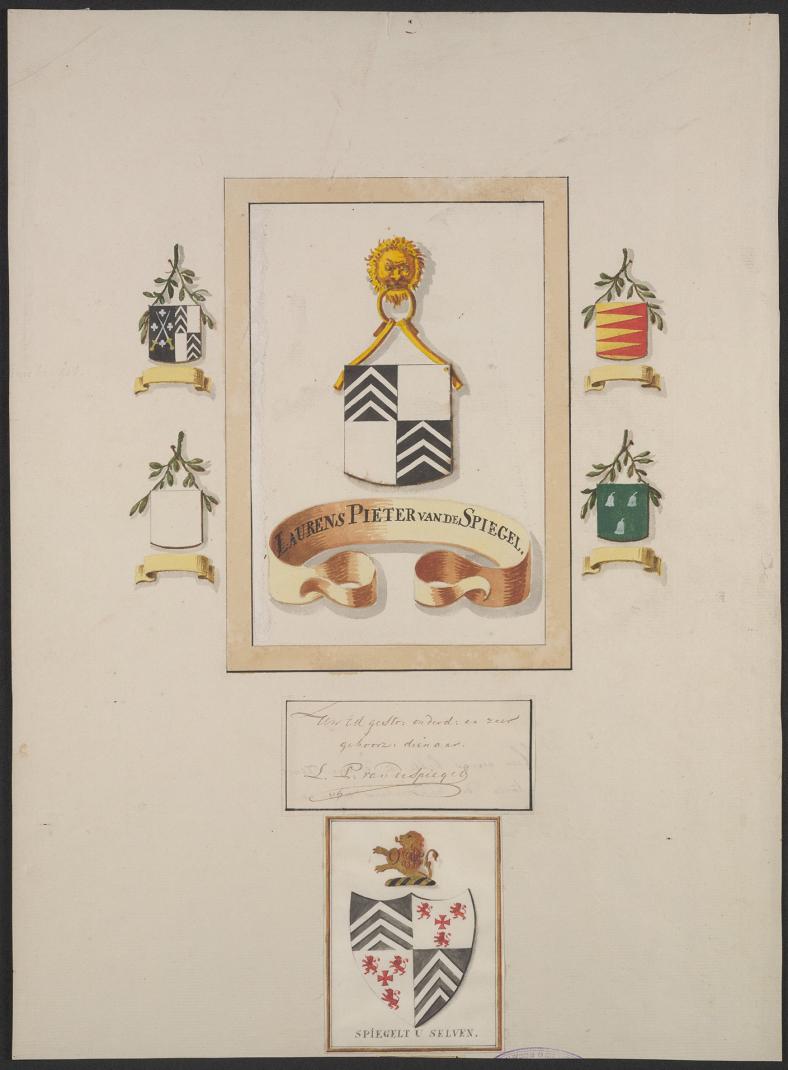 LAURENS PIETER VAN DE SPIEGEL.
Uw Ed gestr: onderd: en zeer
gehoorz: dienaar.
L. P. van de Spiegel
SPIEGELT U SELVEN.